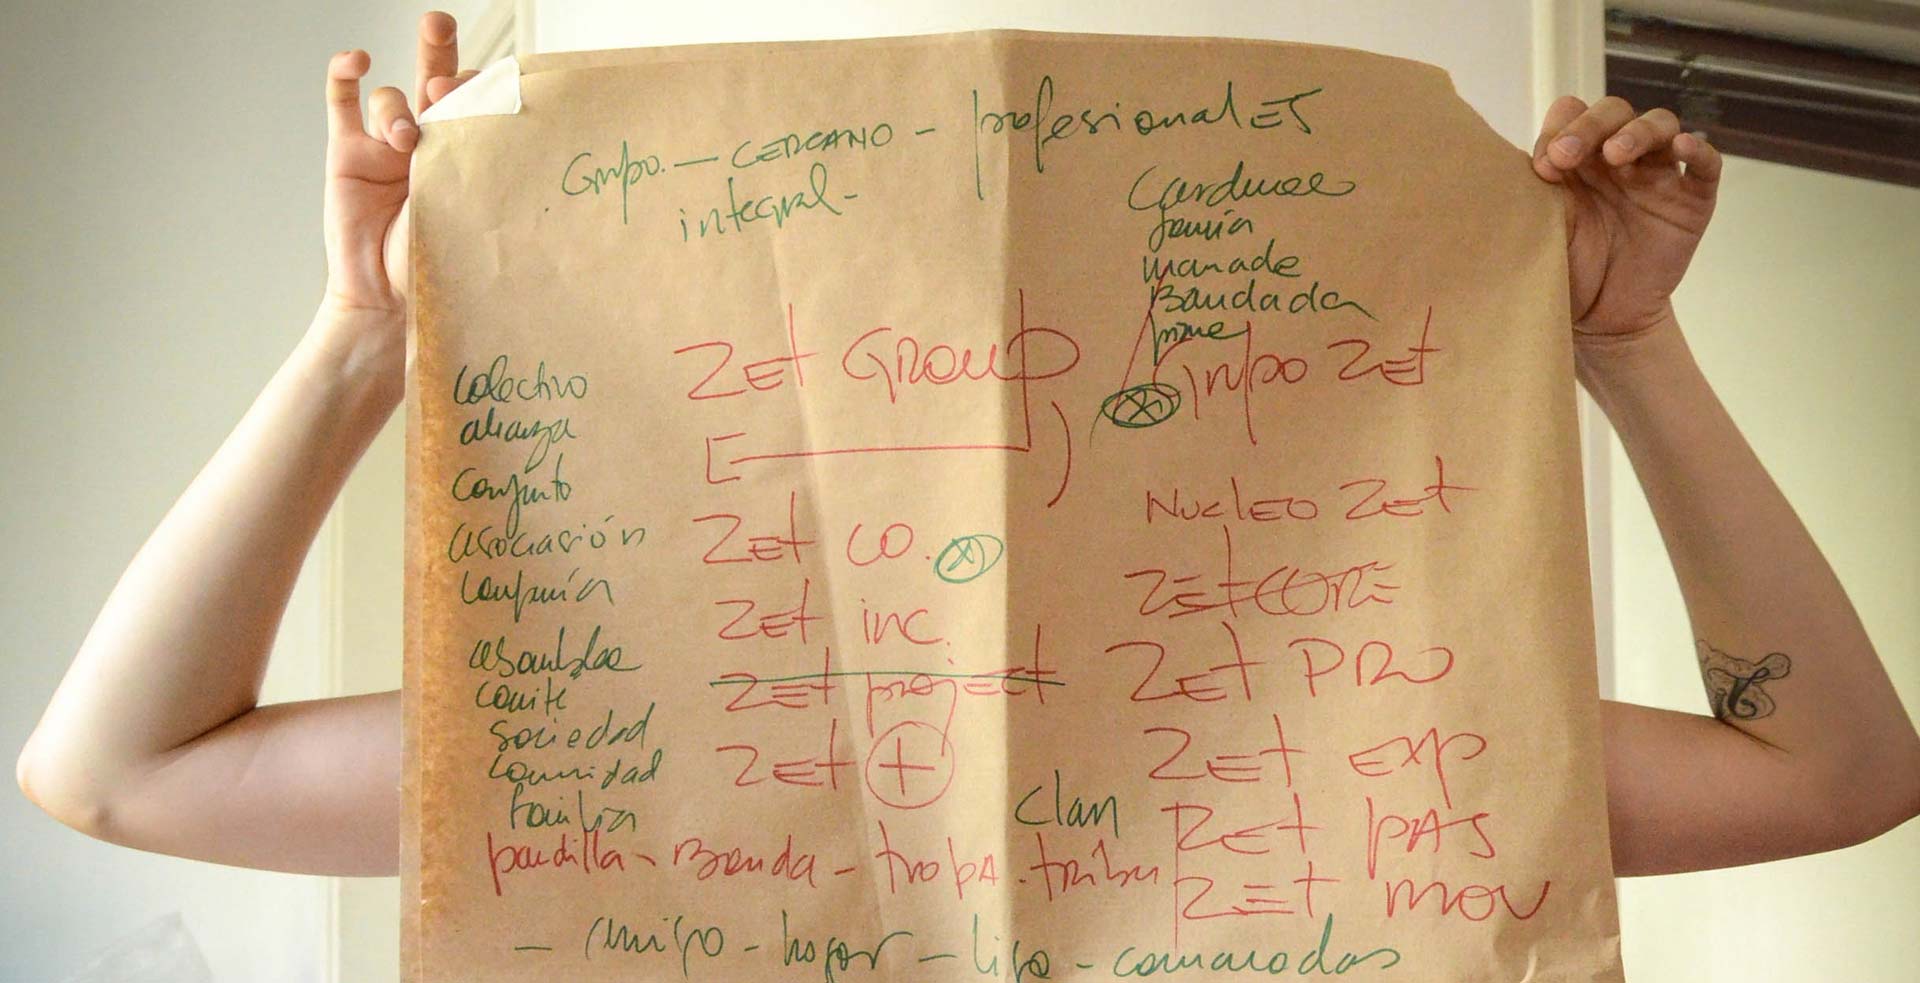 Grupo. — CERCANO - profesionalES
integral -
Cardumee
Jauría
manada
Bandada
ZEt GROUP
Grupo ZEt
colectivo
alianza
conjunto
asociasión
compañía
asamblea
comite
sociedad
comunidad
familia
ZEt CO.
ZEt inc.
ZEt project
ZEt +
NUCLEO ZEt
ZEt CORE
ZEt PRO
ZEt EXP
ZEt PAS
ZEt MOV
clan
pandilla - Banda - tropA. tribu
- amigo - hogar - liga - camaradas